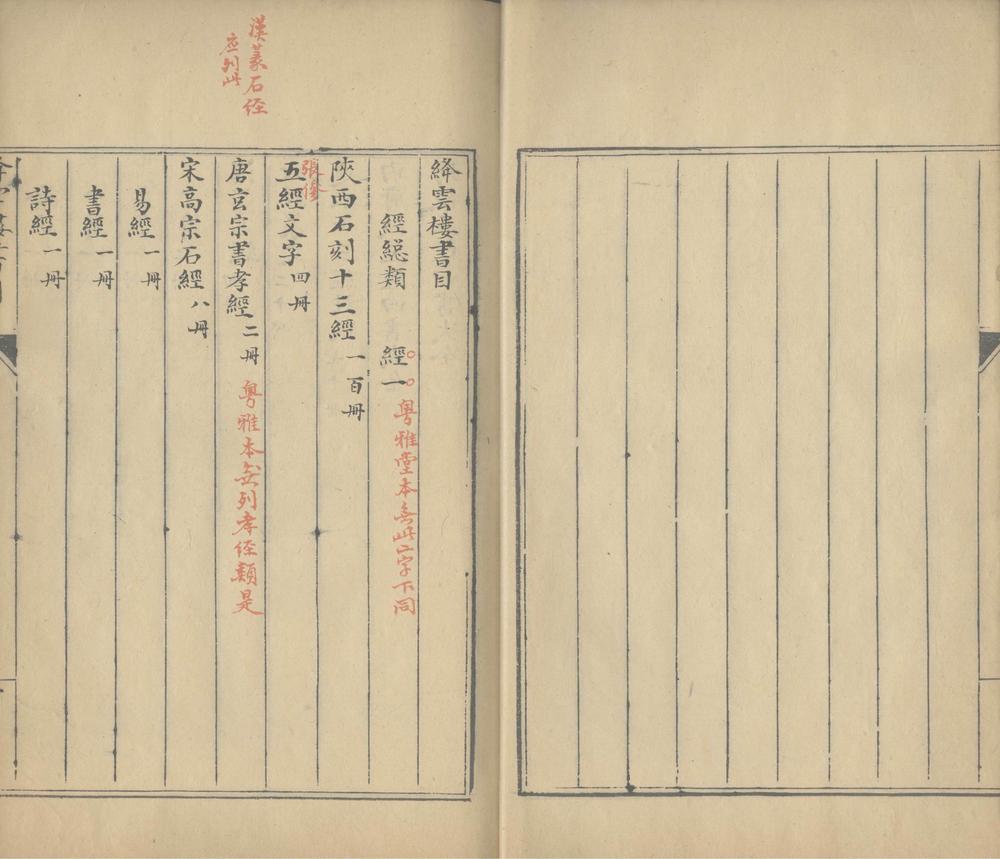 漢篆石經
应列此
絳雲樓書目
經總類 經一 粤雅堂本無此二字下同
陝西石刻十三經 一百冊
張參
五經文字 四冊
唐玄宗書孝經 二冊 粤雅本無列孝經類是
宋高宗石經 八冊
易經 一冊
書經 一冊
詩經 一冊